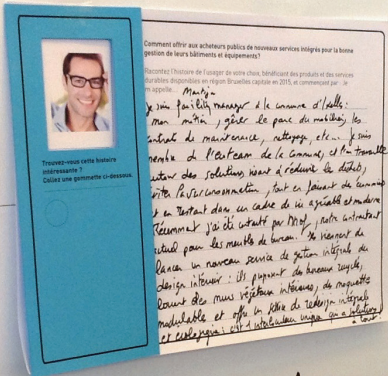 Comment offrir aux acheteurs publics de nouveaux services intégrés pour la bonne
gestion de leurs bâtiments et équipements?
Racontez l'histoire de l'usager de votre choix, bénéficiant des produits et des services
durables disponibles en région Bruxelles capitale en 2015, et commençant par : Je
m'appelle... Martijn
Je suis facility manager à la commune d'Ixelles:
mon métier, gérer le parc du mobilier, les
contrat de maintenance, nettoyage, etc... Je suis
membre de l'ecoteam de la commune, et on travaille
autour des solutions visant à réduire les déchets,
éviter la surconsommation, tout en faisant des
et en restant dans un cadre de vie agréable et moderne
Récemment j'ai été contacté par, notre contractant
actuel pour les meubles de bureau. Ils viennent de
lancer un nouveau service de gestion intégrale du
design intérieur: ils proposent des bureaux recyclés,
louent des murs végétaux intérieurs, des moquettes
modulable et offre un service de redesign intégrale
et écologique: c'est 1 interlocuteur unique qui a solutions
à tout!
Trouvez-vous cette histoire
intéressante ?
Collez une gommette ci-dessous.